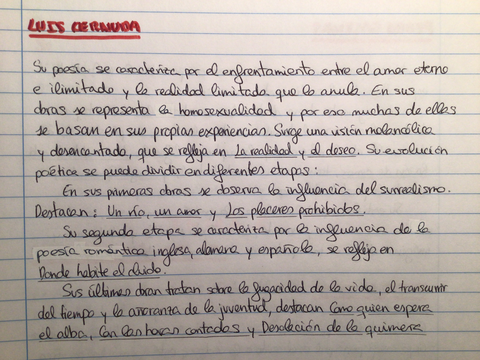 LUIS CERNUDA
Su poesía se caracteriza por el enfrentamiento entre el amor eterno
e ilimitado y la realidad limitada que lo anula. En sus
obras se representa la homosexualidad y por eso muchas de ellas
se basan en sus propias experiencias. Surge una visión melancólica
y desencantada, que se refleja en La realidad y el deseo. Su evolución
poética se puede dividir en diferentes etapas:
En sus primeras obras se observa la influencia del surrealismo.
Destacan: Un río, un amor y Los placeres prohibidos.
Su segunda etapa se caracteriza por la influencia de la
poesía romántica inglesa, alemana y española, se refleja en
Donde habite el olvido.
Sus últimas obras tratan sobre la fugacidad de la vida, el transcurrir
del tiempo y la añoranza de la juventud, destacan Como quien espera
el alba, Con las horas contadas y Desolación de la quimera